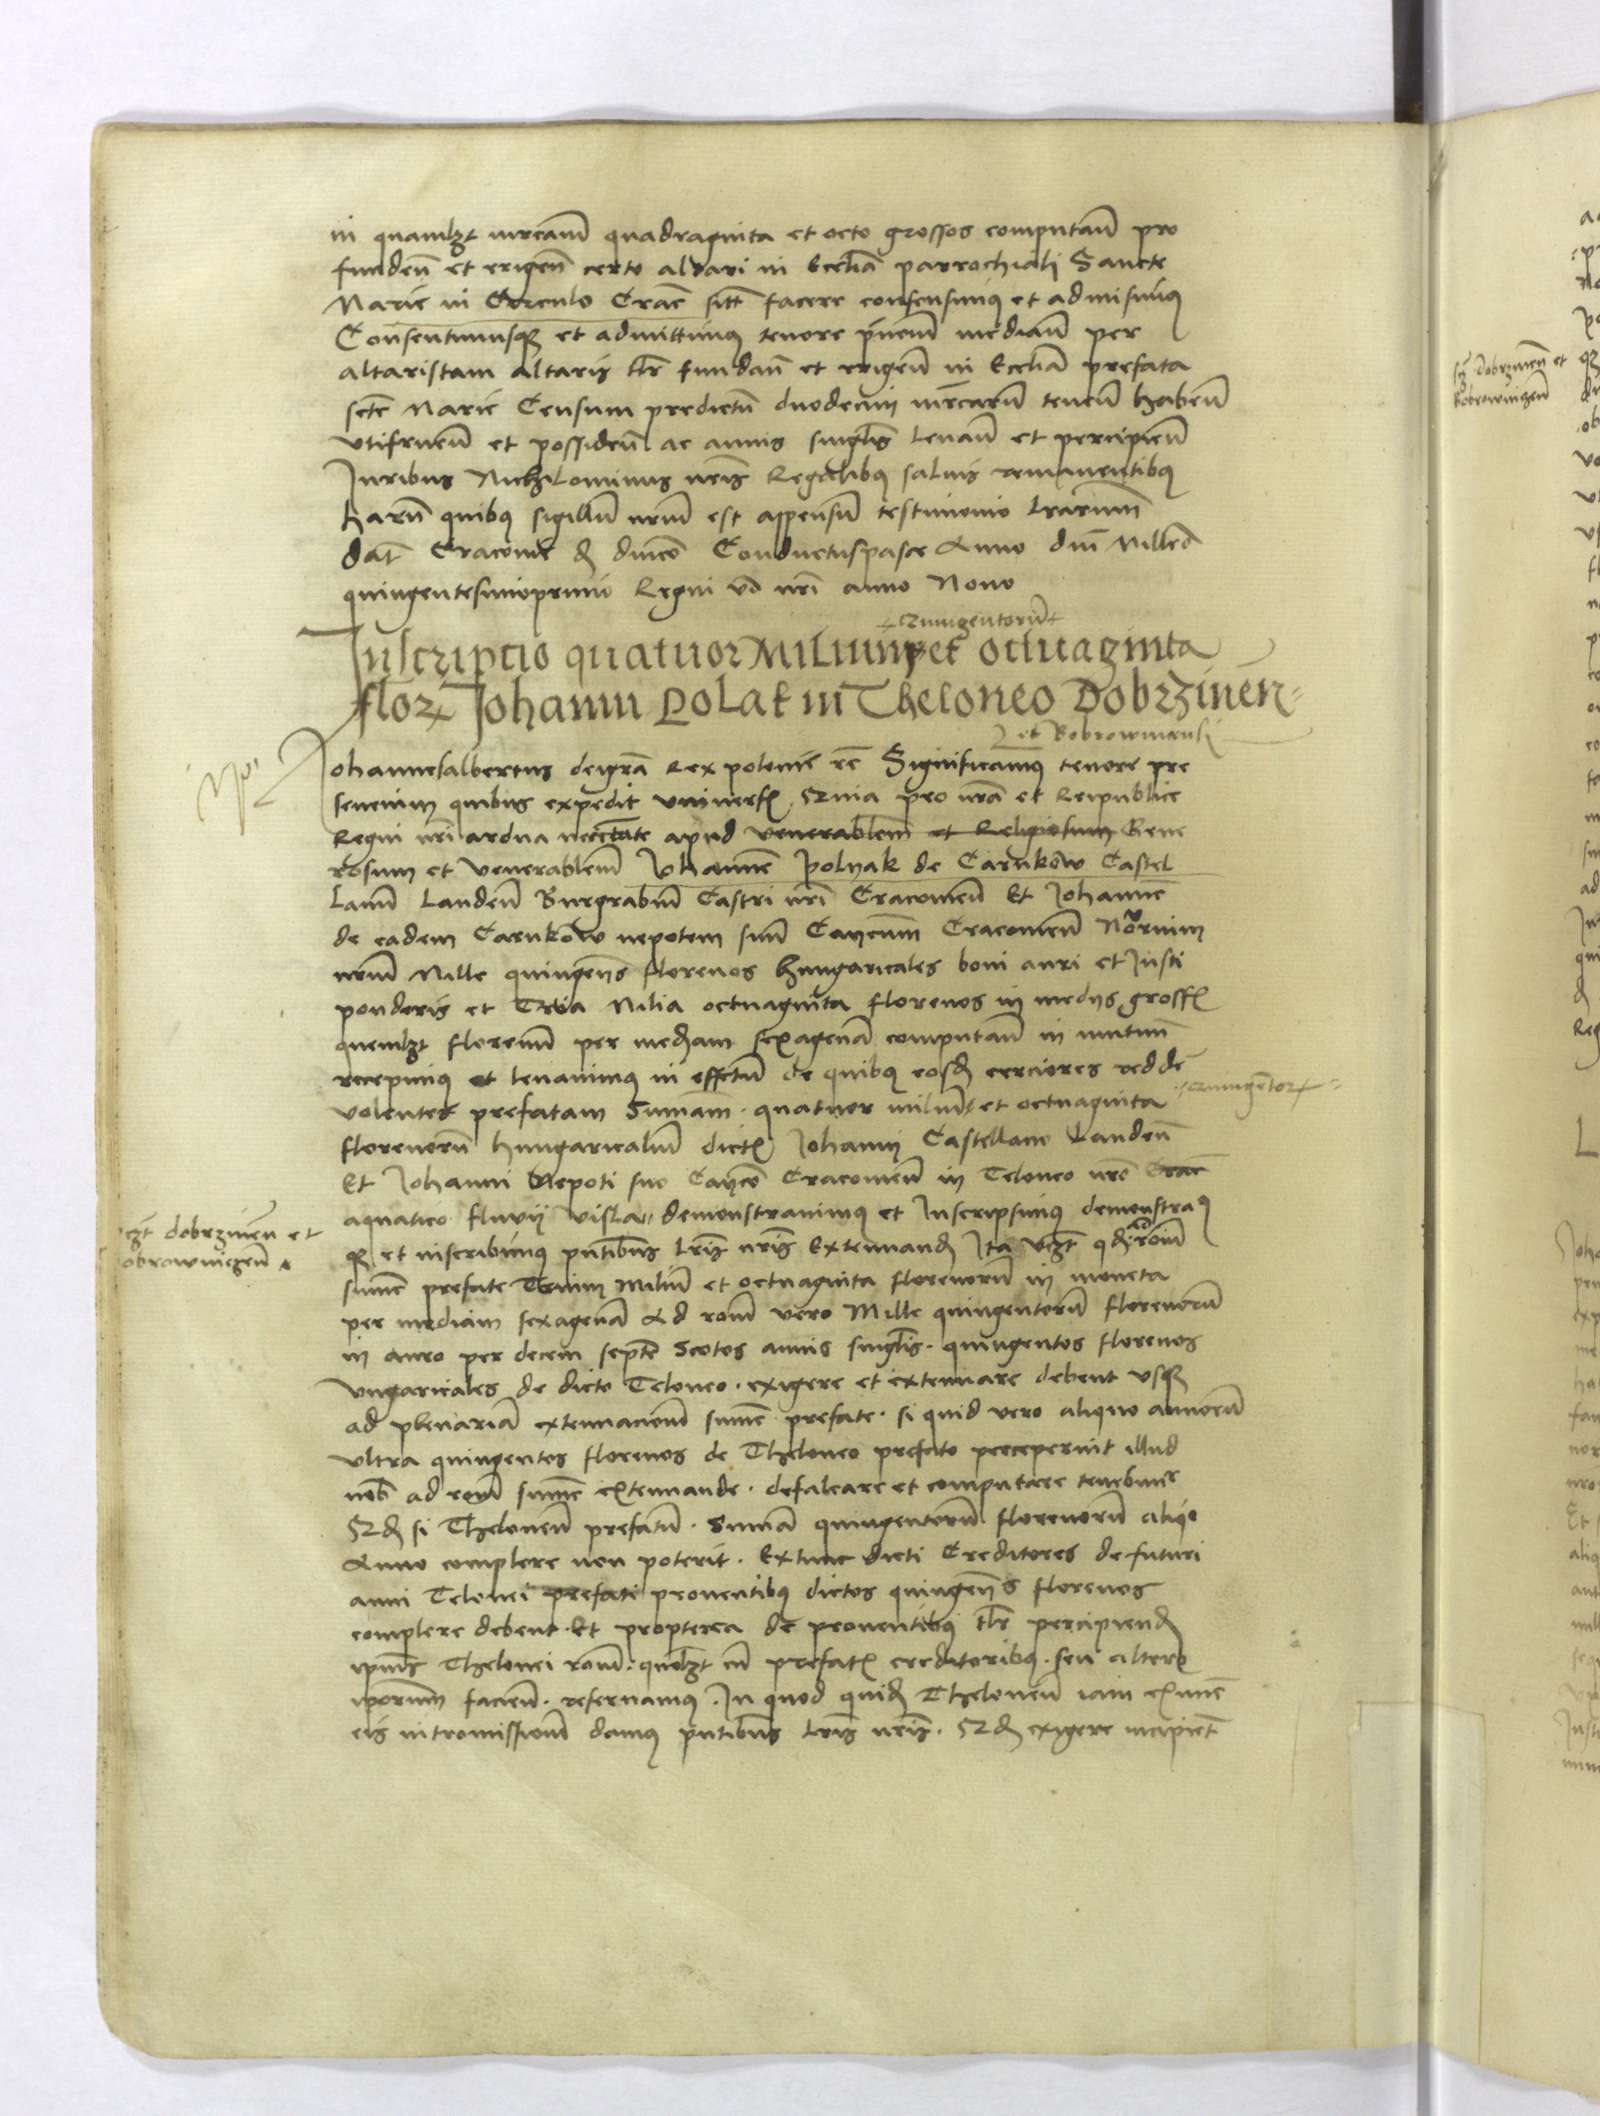 in quamlzt mrcam quadraginta et octo grossos computan pro
funden et erigen certo altari in Ecclia parrochiali Sancte
Marie in Circulo Crac sitt facere consensimus et admisimus
Consentimusq et admittimus tenore pntium median per
altaristam altaris tlr fundan et erigen in Ecclia prefata
scte Marie Censum predictum duodecim mrcarum tenen haben
utifruen et possiden ac annis singlis levan et percipien
Juribus Nichilominus nris Regalibus salvis remanentibus
harum quibus sigillum nrum est appensum testimonio lrarum
dat Cracovie d dnico Conductuspasce Anno dni Millo
quingentesimoprimo Regni vo nri anno Nono
quingentorum
Inscripcio quatuor Milium et octuaginta
flor Johanni Polak in Theloneo Dobrzinen
et Bobrowniensi
Johannesalbertus deigra Rex polonie rc Significamus tenore pre
sencium quibus expedit universis Quia pro nra et Reipublice
Regni nri ardua necctate apud venerablem et Religiosum Gene
rosum et venerablem Johannem Polyak de Carnkow Castel
lanum Landen Burgrabium Castri nri Cracovien Et Johanne
de eadem Carnkow nepotem suum Cancum Cracovien Notarium
nrum Mille quingens florenos hungaricales boni auri et Justi
ponderis et Tria Milia octuaginta florenos in medys gross
quemlzt florenum per mediam sexagenam computan in mutuum
recepimus et levavimus in effectum de quibus eosd cerciores redde
volentes prefatam Summam quatuor milium et octuaginta
quingentor
florenorum hungaricalium dictis Johanni Castellano Landen
Et Johanni Nepoti suo Canco Cracovien in Teloneo nro Crac
aquatico fluvii Visla demonstravimus et Inscripsimus demonstram
vzt dobrzinen et
obrowniczen
q et inscribimus pntibus lris nris Extenuand Ita vzt q ad rom
summe prefate Trium Milium et octuaginta florenorum in moneta
per mediam sexagenam Ad rom vero Mille quingentorum florenorum
in auro per decem septe Scotos annis singlis quingentos florenos
ungaricales de dicto Teloneo exigere et extenuare debent usq
ad plenariam extenuacionem summe prefate si quid vero aliquo annorum
ultra quingentos florenos de Theloneo prefato perceperint illud
nob ad rom summe extenuande defalcare et computare tenebunr
Qd si Theloneum prefatum Summam quingentorum florenorum aliquo
Anno complere non poterit Extunc dicti Creditores de futuri
anni Telonei prefati proventibus dictos quingens florenos
complere debent Et propterea de proventibus tlr percipiend
ipius Thelonei rom quolzt cum prefatis creditoribus seu altero
iporum facien reservamus In quod quid Theloneum iam ex nunc
eis intromissionem damus pntibus lris nris Qd exigere incipient
scz Dobrzinen et
Bobrowniczen